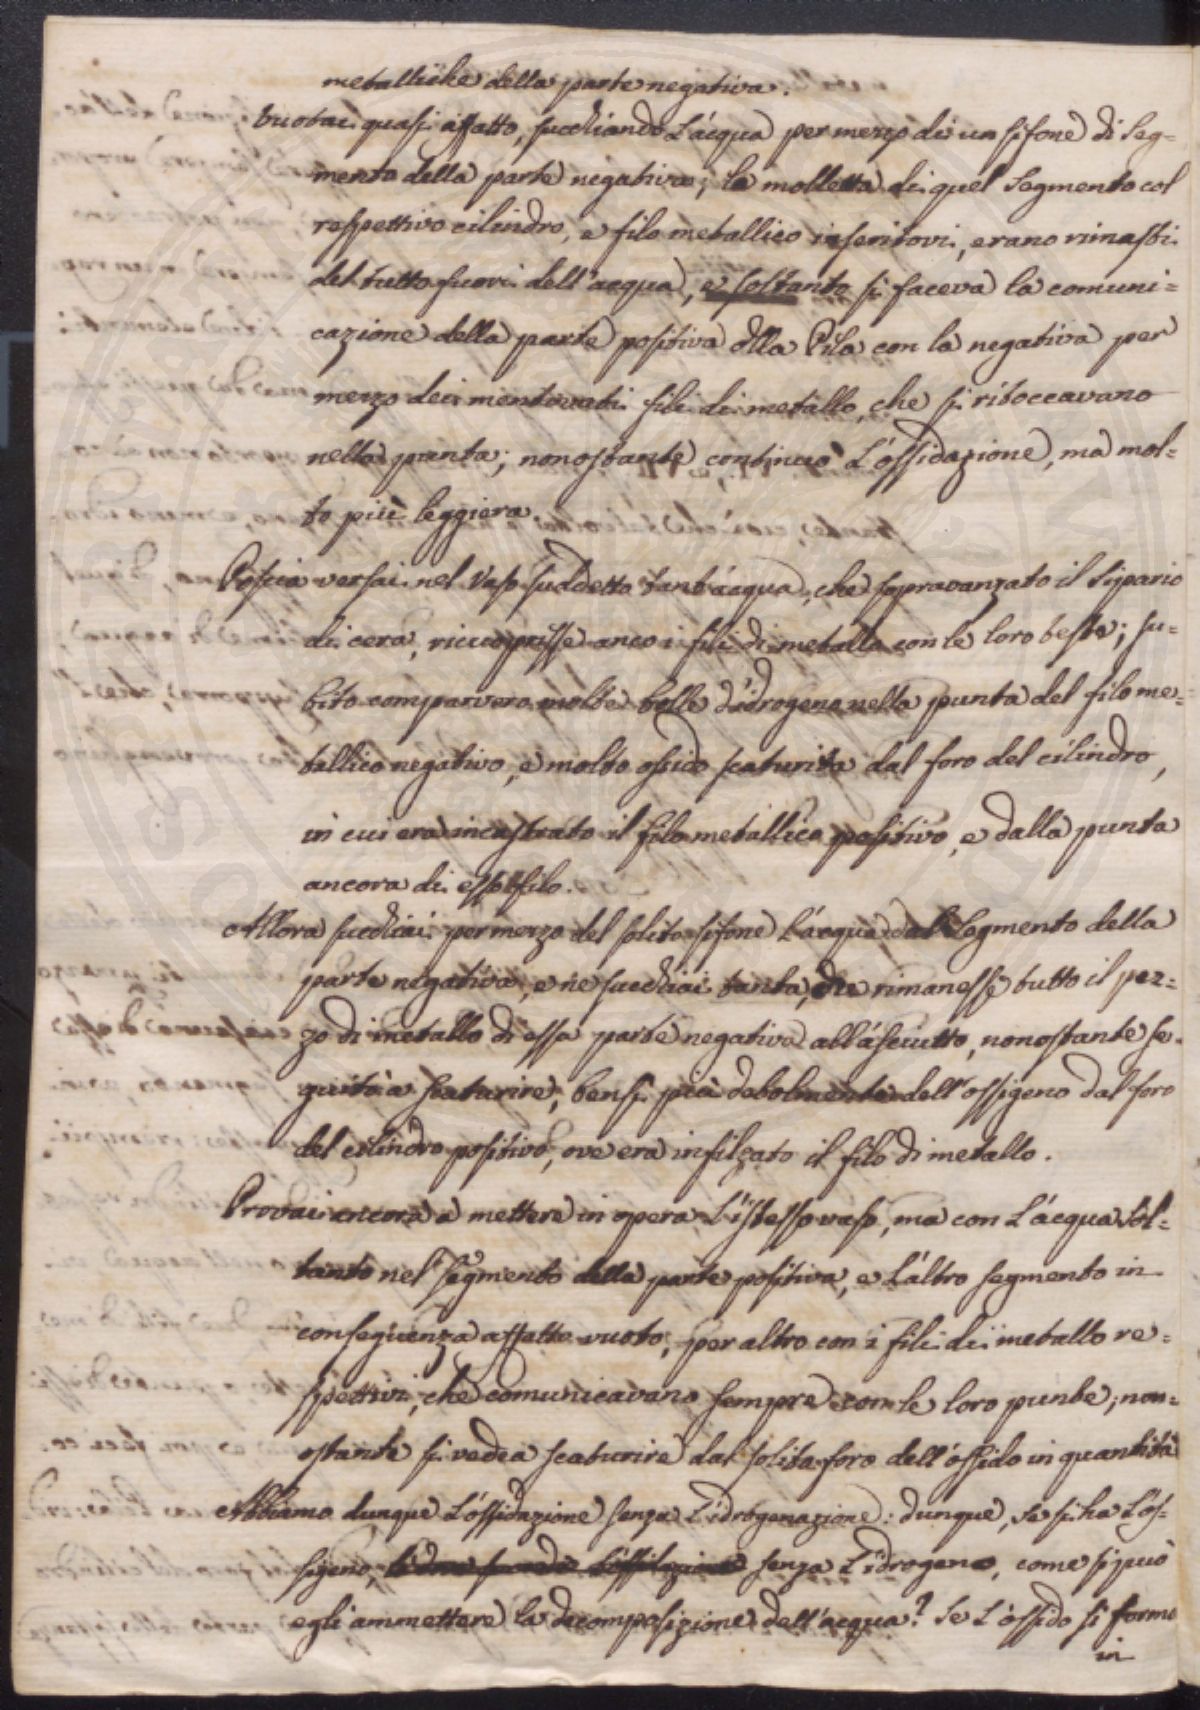 metalliche della parte negativa.
Vuotai quasi affatto, succhiando l'acqua per mezzo di un sifone di seg=
mento della parte negativa; la molletta di quel segmento col
respettivo cilindro, e filo metallico inseritovi, erano rimasti
del tutto fuori dell'acqua, e soltanto si faceva la comuni=
cazione della parte positiva della Pila con la negativa per
mezzo dei mentovati fili di metallo, che si ritoccavano
nella punta; nonostante continuò l'ossidazione, ma mol=
to più leggiera.
Poscia versai nel Vaso suddetto tant'acqua, che sopravanzato il sipario
di cera, riccoprisse anco i fili di metallo con le loro teste; su=
bito comparvero molte bolle d'idrogeno nella punta del filo me=
tallico negativo, e molto ossido scaturità dal foro del cilindro,
in cui era incastrato il filo metallico positivo, e dalla punta
ancora di esso filo.
Allora succhiai per mezzo del solito sifone l'acqua dal segmento della
parte negativa, e ne succhiai tanta, che rimanesse tutto il pez=
zo di metallo di essa parte negativa all'asciutto, nonostante se=
guitò a scaturire, bensì più debolmente dell'ossigeno dal foro
del cilindro positivo, ove era infilzato il filo di metallo.
Provai ancora a mettere in opera l'istesso vaso, ma con l'acqua sol=
tanto nel segmento della parte positiva, e l'altro segmento in
conseguenza affatto vuoto, per altro con i fili di metallo re=
spettivi, che comunicavano sempre con le loro punte; non=
ostante si vedea scaturire dal solito foro dell'ossido in quantità
Abbiamo dunque l'ossidazione senza l'idrogenazione: dunque, se si ha l'os=
sigeno, senza l'idrogeno, come si può
egli ammettere la decomposizione dell'acqua? Se l'ossido si forma
in